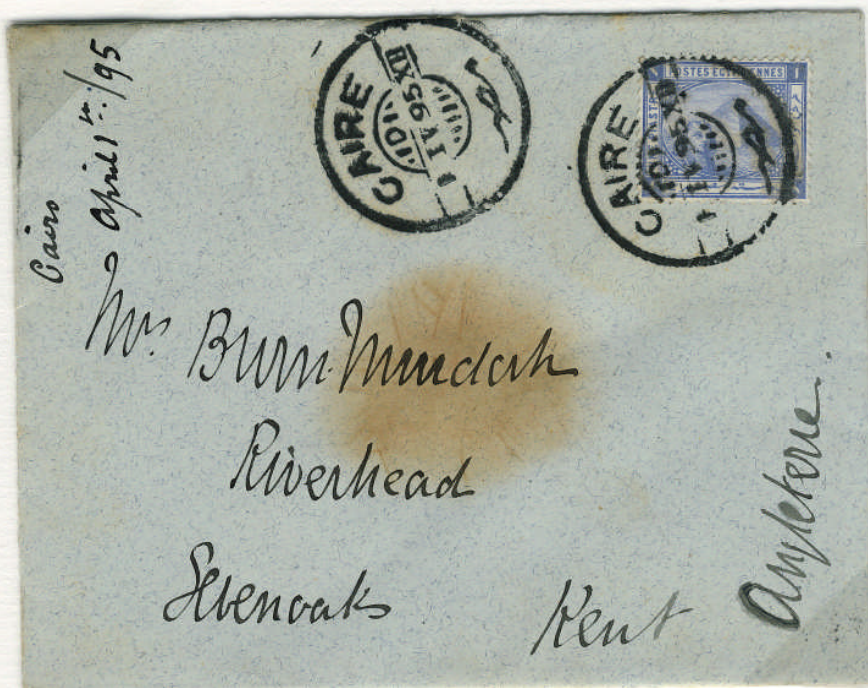 Cairo
April 1st./95
CAIRE
1 IV 95 XII
POSTES EGYPTIENNES
CAIRE
1 IV 95 XII
Mrs. Burn Murdoch
Riverhead
Sevenoaks
Kent
Angleterre.